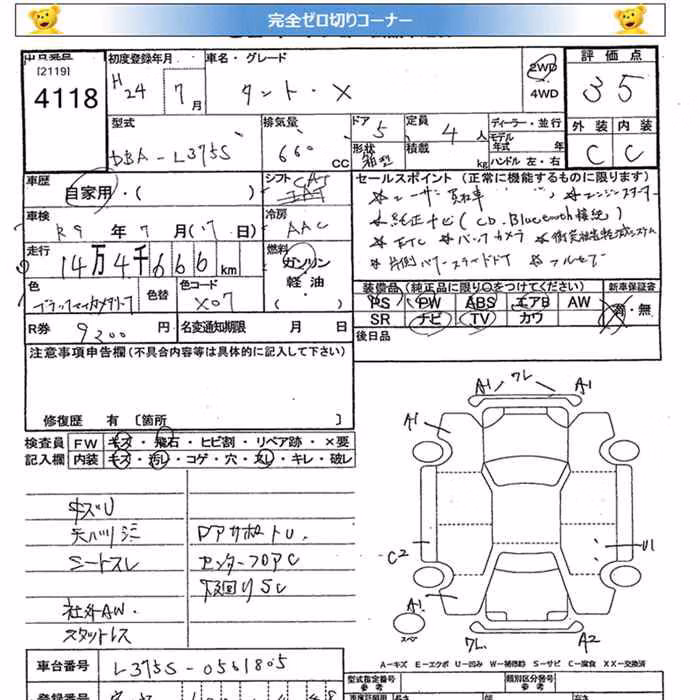 完全ゼロ切りコーナー
[2119]
4118
初度登録年月
H24 7月
車名・グレード
タント・X
2WD
4WD
評価点
35
外装 内装
C C
型式
DBA-L375S
排気量
660 CC
ドア 5
形状 箱型
定員 4人
積載 kg
ディーラー・並行
モデル年式 年式
ハンドル 左・右
車歴
自家用・( )
シフト CAT
車検
R9 年 7 月 (17 日)
冷房
AAC
走行
14万4千666km
燃料
ガソリン
軽油
( )
色
色替
色コード
X07
R券 9200円
名変通知期限 月 日
セールスポイント (正常に機能するものに限ります)
※ユーザー買取車 ※エンジンスターター
※純正ナビ(CD.Bluetooth接続)
※ETC ※バックカメラ
※片側パワースライドドア ※フルセグ
装備品(純正品に限り○をつけてください)
新車保証書
PS PW ABS エアB AW
SR ナビ TV カワ
有・無
後日品
注意事項申告欄(不具合内容等は具体的に記入して下さい)
修復歴 有 [箇所 ]
検査員記入欄
FW キズ・飛石・ヒビ割・リペア跡・×要
内装 キズ・汚レ・コゲ・穴・スレ・キレ・破レ
キズU
天バリシミ
シートスレ
社外AW.
スタットレス
ドアサポートU.
センターフロアC
下回りSC
A1 ワレ A1
A1
C2
U1
A1
スペア
ワレ A2
A-キズ E-エクボ U-凹み W-補修跡 S-サビ C-腐食 XX-交換済
車台番号 L375S-0561805
型式指定番号 参考
類別区分番号 参考
登録番号
長さ 幅 高さ